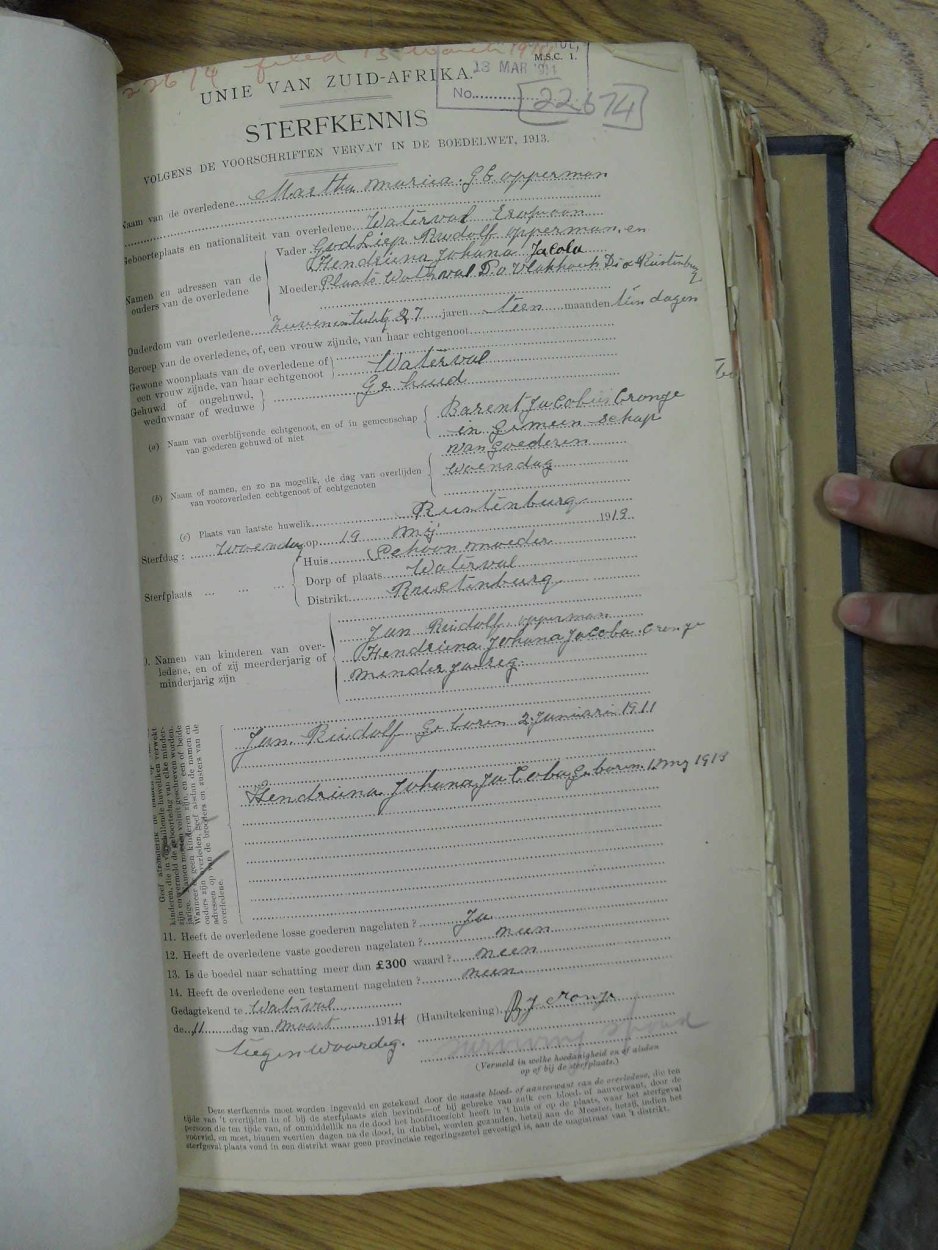 22674 filed 13 March 19
M.S.C. 1.
13 MAR
UNIE VAN ZUID-AFRIKA.
No. 22674
STERFKENNIS
VOLGENS DE VOORSCHRIFTEN VERVAT IN DE BOEDELWET, 1913.
Naam van de overledene Martha Opperman
Geboorteplaats en nationaliteit van overledene Waterval
Namen en adressen van de ouders van de overledene
Vader Godliep Rudolf opperman en
Hendriena Johana Jacoba
Moeder Plaats Waterval D.o Vlakhoek Dis Rustenburg
Ouderdom van overledene 27 jaren maanden dagen
Beroep van de overledene, of, een vrouw zijnde, van haar echtgenoot
Gewone woonplaats van de overledene of een vrouw zijnde, van haar echtgenoot Waterval
Gehuwd of ongehuwd, weduwnaar of weduwe Gehuid
(a) Naam van overblijvende echtgenoot, en of in gemeenschap van goederen gehuwd of niet
Barent Jacobus Cronje
in Gemein schap
van Goederen
(b) Naam of namen, en zo na mogelik, de dag van overlijden van vooroverleden echtgenoot of echtgenoten
Woensdag
(c) Plaats van laatste huwelik Rustenburg
Sterfdag: Woensdag op 19 1919
Sterfplaats ... ... ...
Huis Schoon moeder
Dorp of plaats Waterval
Distrikt Rustenburg
Namen van kinderen van overledene, en of zij meerderjarig of minderjarig zijn
Jan Rudolf opperman
Hendriena Johana Jacoba Cronje
minder Jareg
Jan Rudolf Geboren 2 Januarie 1911
Hendriena Johana Jacoba Geboren
11. Heeft de overledene losse goederen nagelaten? Ja
12. Heeft de overledene vaste goederen nagelaten? neen
13. Is de boedel naar schatting meer dan £300 waard? neen
14. Heeft de overledene een testament nagelaten? neen
Gedagtekend te Waterval
de 11 dag van Maart 1914 (Handtekening) B J Cronje
tiegenwoordig.
surviving spouse
(Vermeld in welke hoedanigheid en of aldan op of bij de sterfplaats.)
Deze sterfkennis moet worden ingevuld en getekend door de naaste bloed- of aanverwant van de overledene, die ten
tijde van 't overlijden in of bij de sterfplaats zich bevindt—of bij gebreke van zulk een bloed- of aanverwant, door de
persoon die ten tijde van, of onmiddellik na de dood het hoofdtoezicht heeft in 't huis of op de plaats, waar het sterfgeval
voorviel, en moet, binnen veertien dagen na de dood, in dubbel, worden gezonden, hetzij aan de Meester, hetzij, indien het
sterfgeval plaats vond in een distrikt waar geen provinciale regeringszetel gevestigd is, aan de magistraat van 't distrikt.